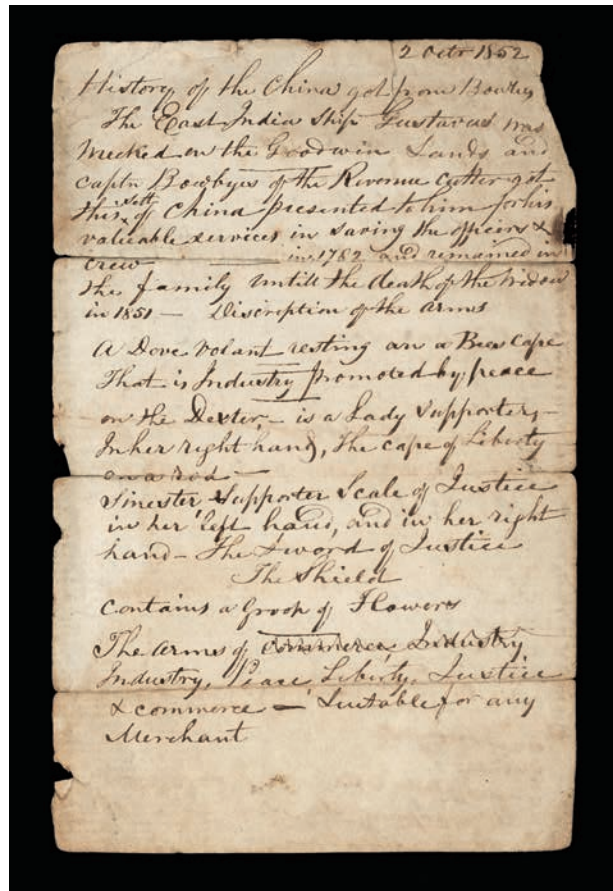 2 Octr 1852
History of the China got from Bowbys
The East India Ship Gustavus was
Wrecked on the Goodwin Sands and
captn Bowbyes of the Revenue cutter got
this Sett of China presented to him for his
valuable services in saving the officers &
crew — in 1782 and remained in
the family untill the death of the Widow
in 1851 — Discription of the arms
A Dove Volant resting an a Bees cape
That is Industry promoted by peace
on the Dexter,— is a Lady Supporter,—
In her right hand, The cape of Liberty
on a rod —
Sinester Supporter Scale of Justice
in her left hand, and in her right
hand— The Sword of Justice
The Shield
contains a Groop of Flowers
The arms of Industry
Industry, Peace, Liberty, Justice
& commerce — Suitable for any
Merchant